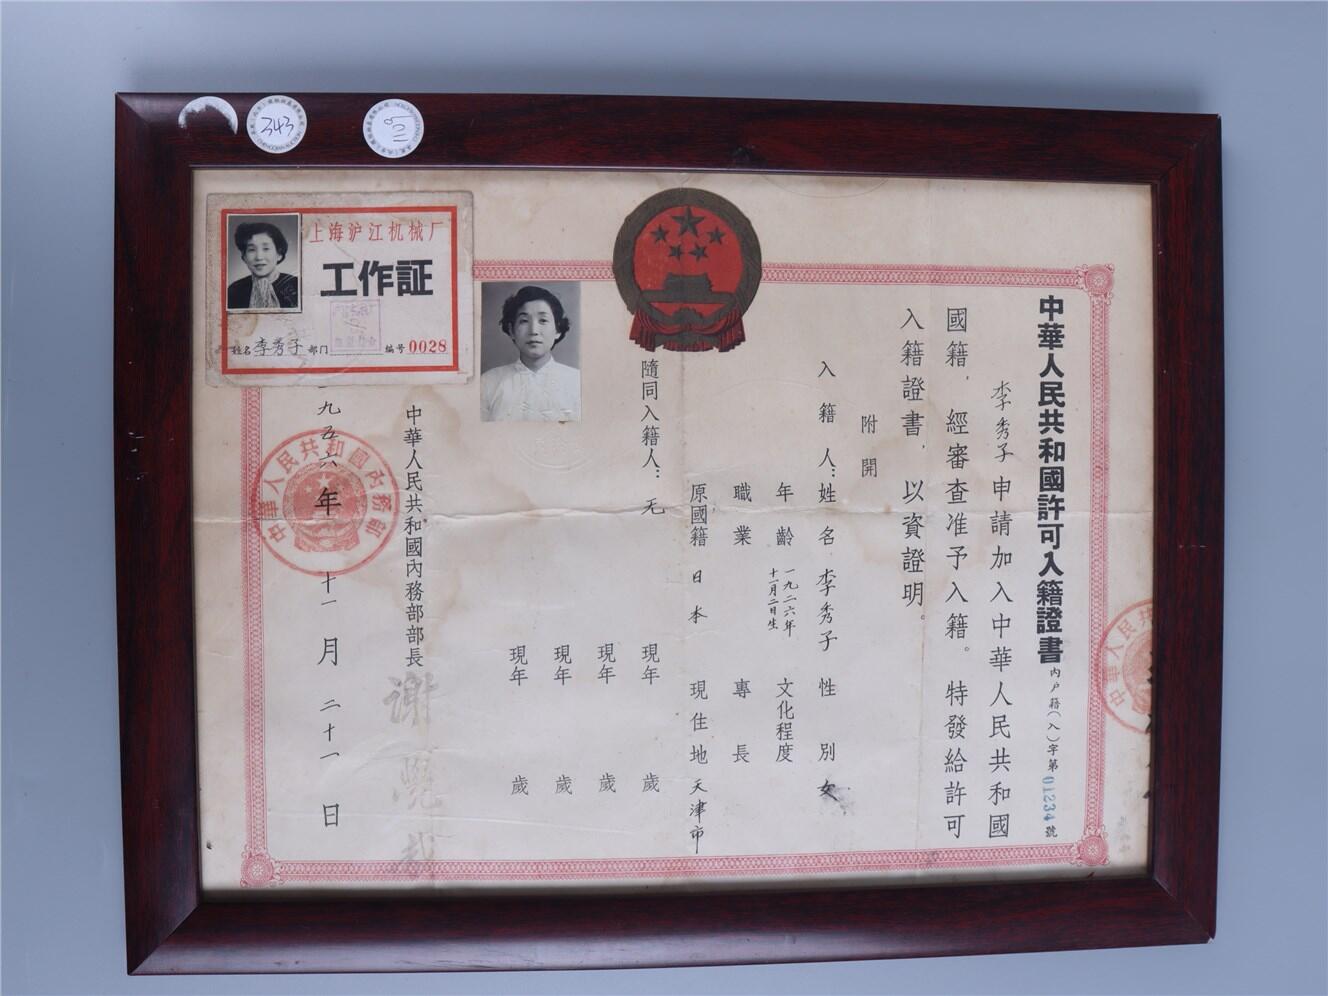 343
109
上海沪江机械厂
工作証
姓名 李秀子 部门 编号 0028
中華人民共和國許可入籍證書
内户籍(入)字第01234號
李秀子申請加入中華人民共和國
國籍,經審查准予入籍。特發給許可
入籍證書,以資證明。
附開
入籍人:姓名 李秀子 性別 女
年齡 一九二六年十一月二日生 文化程度
職業 專長
原國籍 日本 現住地 天津市
隨同入籍人:无
現年 歲
現年 歲
現年 歲
現年 歲
中華人民共和國內務部部長 謝覺哉
一九五六年十一月二十一日
中華人民共和國內務部
中華人民共